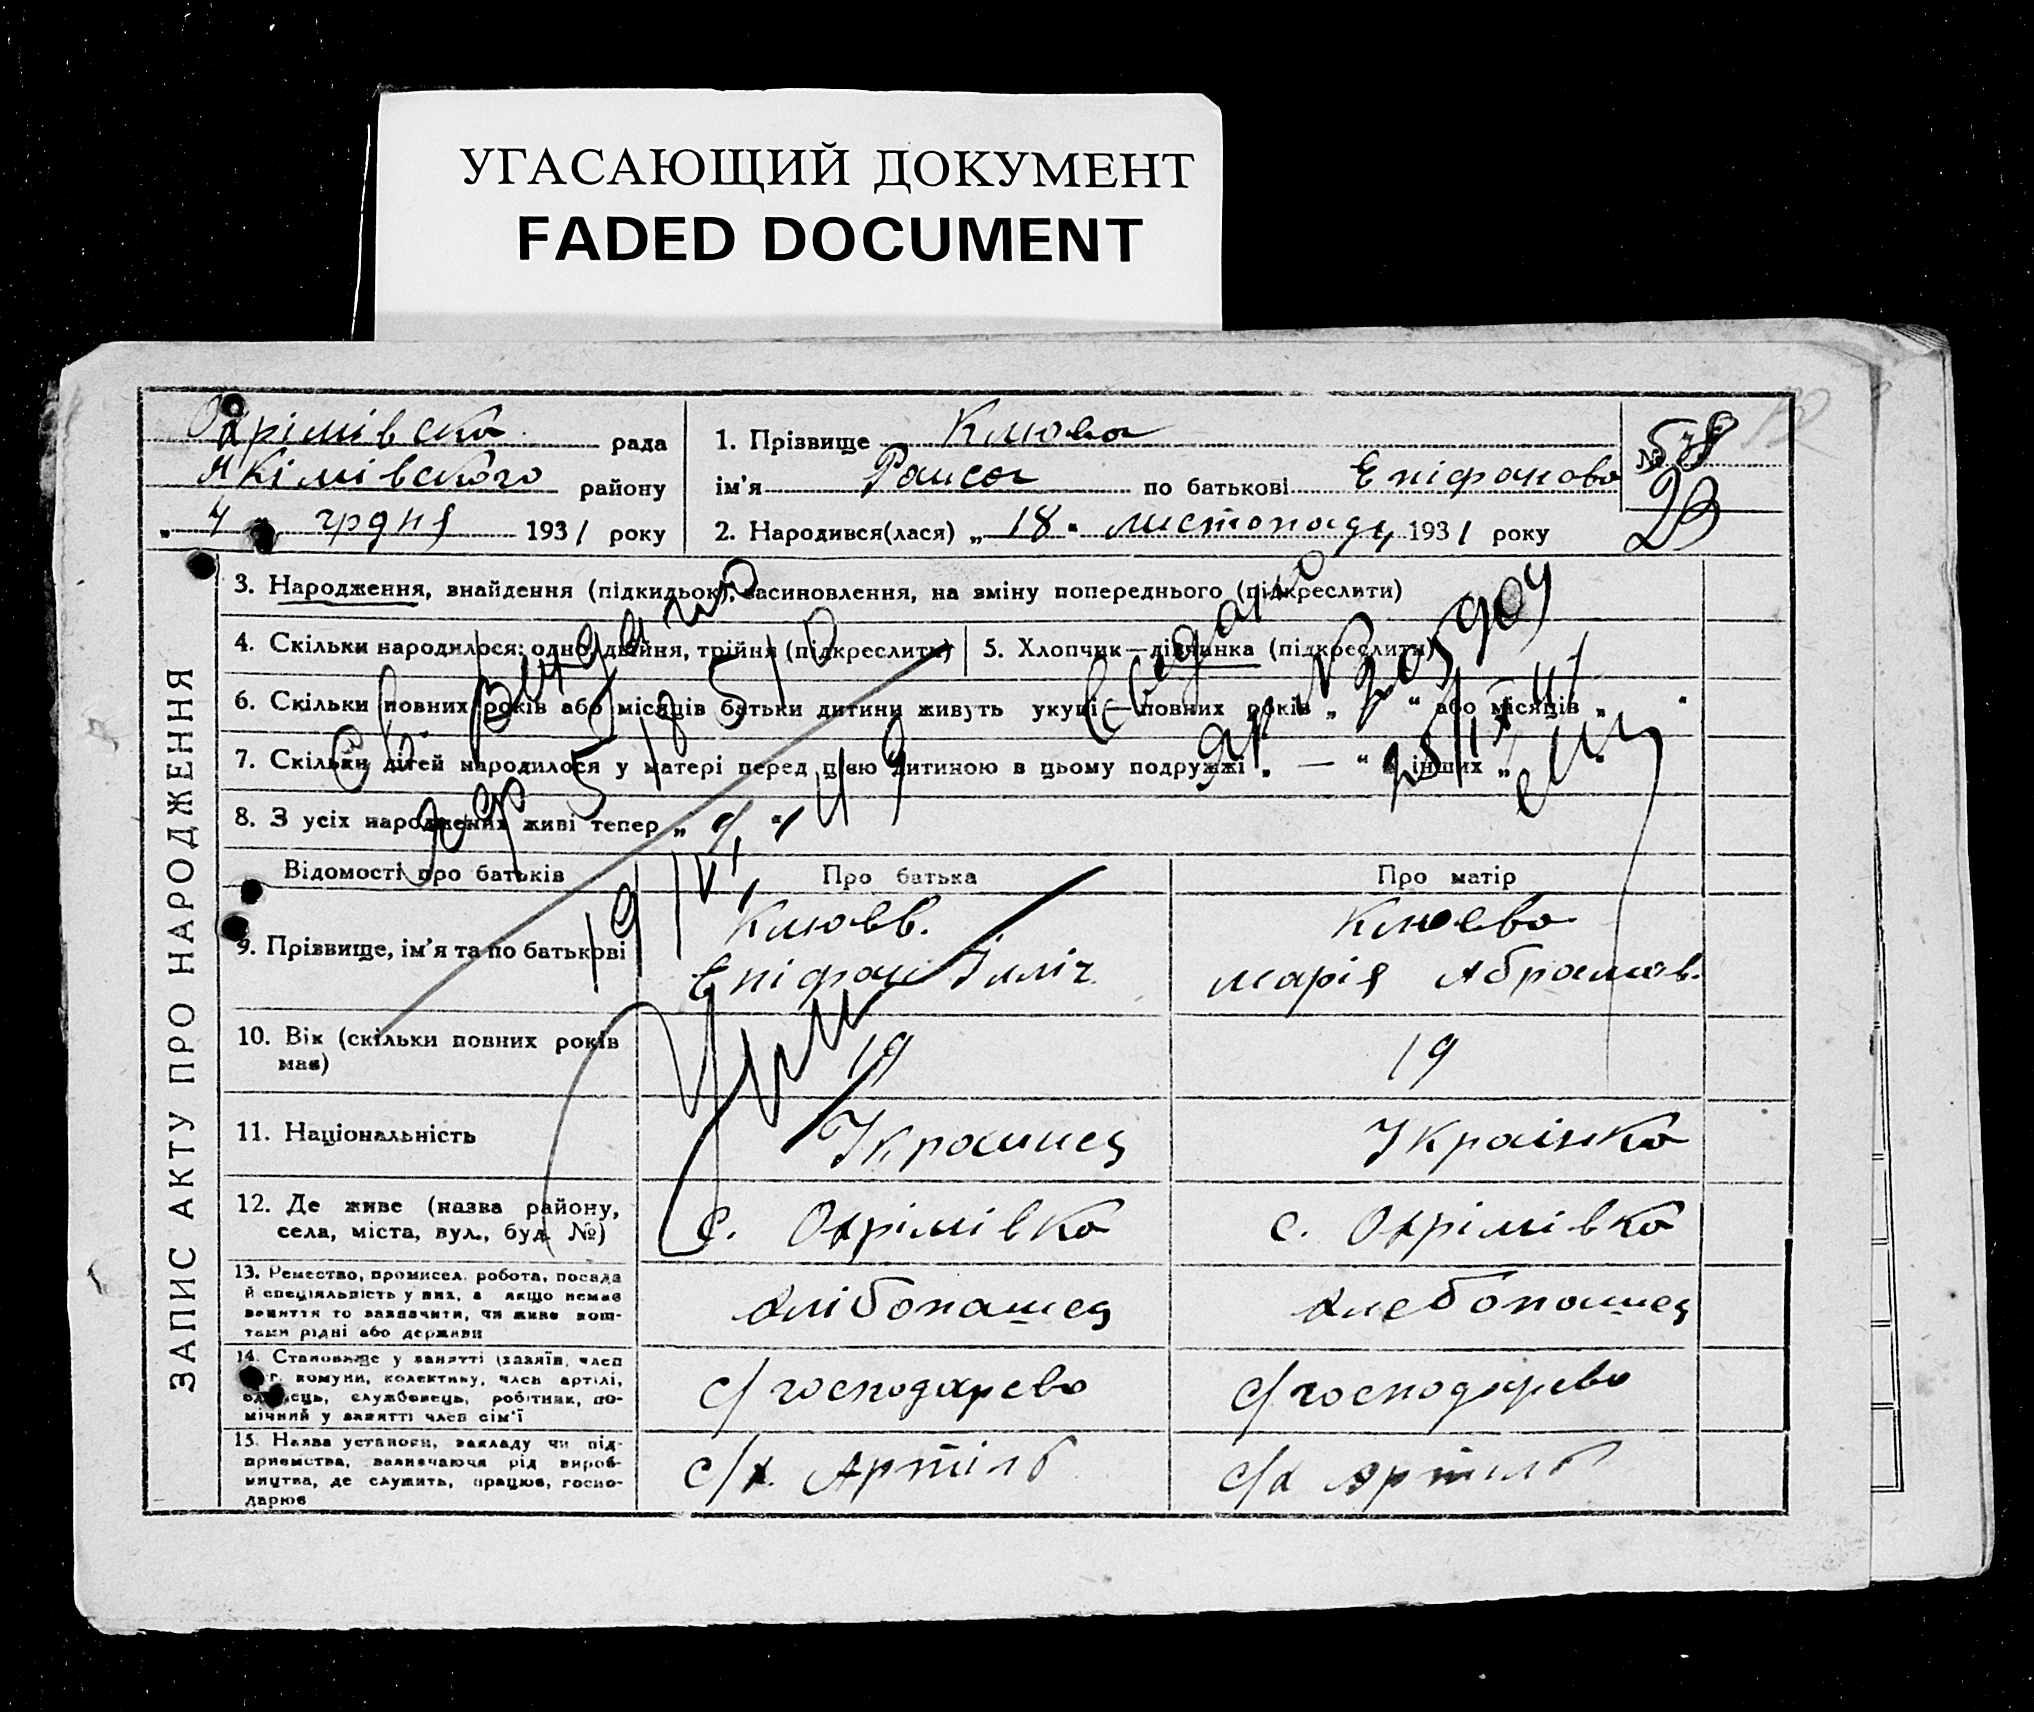 УГАСАЮЩИЙ ДОКУМЕНТ
FADED DOCUMENT
Охрімівска рада
Якімівского району
„ 4 “ грдня 1931 року
1. Прізвище Клюева
ім'я Раиса по батькові Епіфанова
2. Народився(лася) „ 18 “ листопаду 1931 року
№ 578
23
ЗАПИС АКТУ ПРО НАРОДЖЕННЯ
3. Народження, знайдення (підкидьок), засиновлення, на зміну попереднього (підкреслити)
4. Скільки народилося: одно, двійня, трійня (підкреслити)
5. Хлопчик—дівчинка (підкреслити)
6. Скільки повних років або місяців батьки дитини живуть укупі — повних років „ “ або місяців „ “
7. Скільки дітей народилося у матері перед цією дитиною в цьому подружжі „ — “ в інших „
8. З усіх народжених живі тепер „
Св. Видано
Відомості про батьків
Про батька
Про матір
9. Прізвище, ім'я та по батькові
Клюев.
Епіфан Ілліч
Клюева
Марія Абрамов.
10. Вік (скільки повних років має)
19
19
11. Національність
Украинец
Украінка
12. Де живе (назва району, села, міста, вул., буд. №)
с. Охрімівка
с. Охрімівка
13. Ремество, промисел, робота, посада й спеціяльність у них, а якщо немає заняття то зазначити, чи живе коштами рідні або держави
хлібопашец
хлебопашец
14. Становище у занятті (хазяїн, член с.-г. комуни, колективу, член артілі, одинець, службовець, робітник, помічний у занятті член сім'ї
с/господарево
с/господарево
15. Назва установи, закладу чи підприємства, зазначаючи рід виробництва, де служить, працює, господарює
с/х. Артіль
с/х артиль